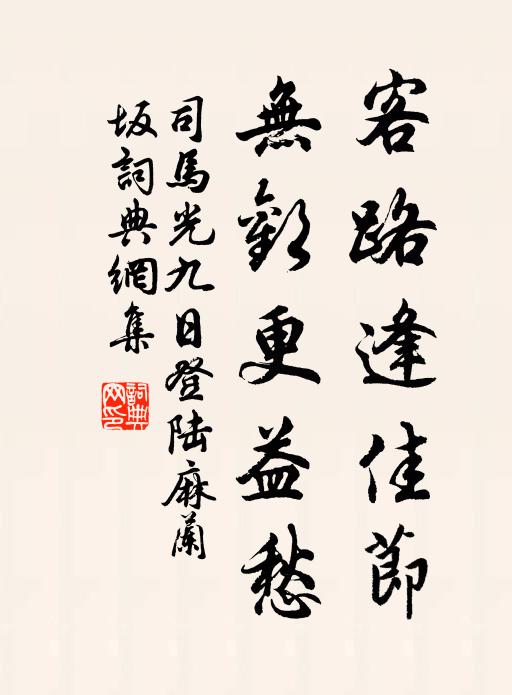 客路逢佳節
無歡更益愁
司馬光九日登陸麻蘭
坂詞典網集
詞典
網印